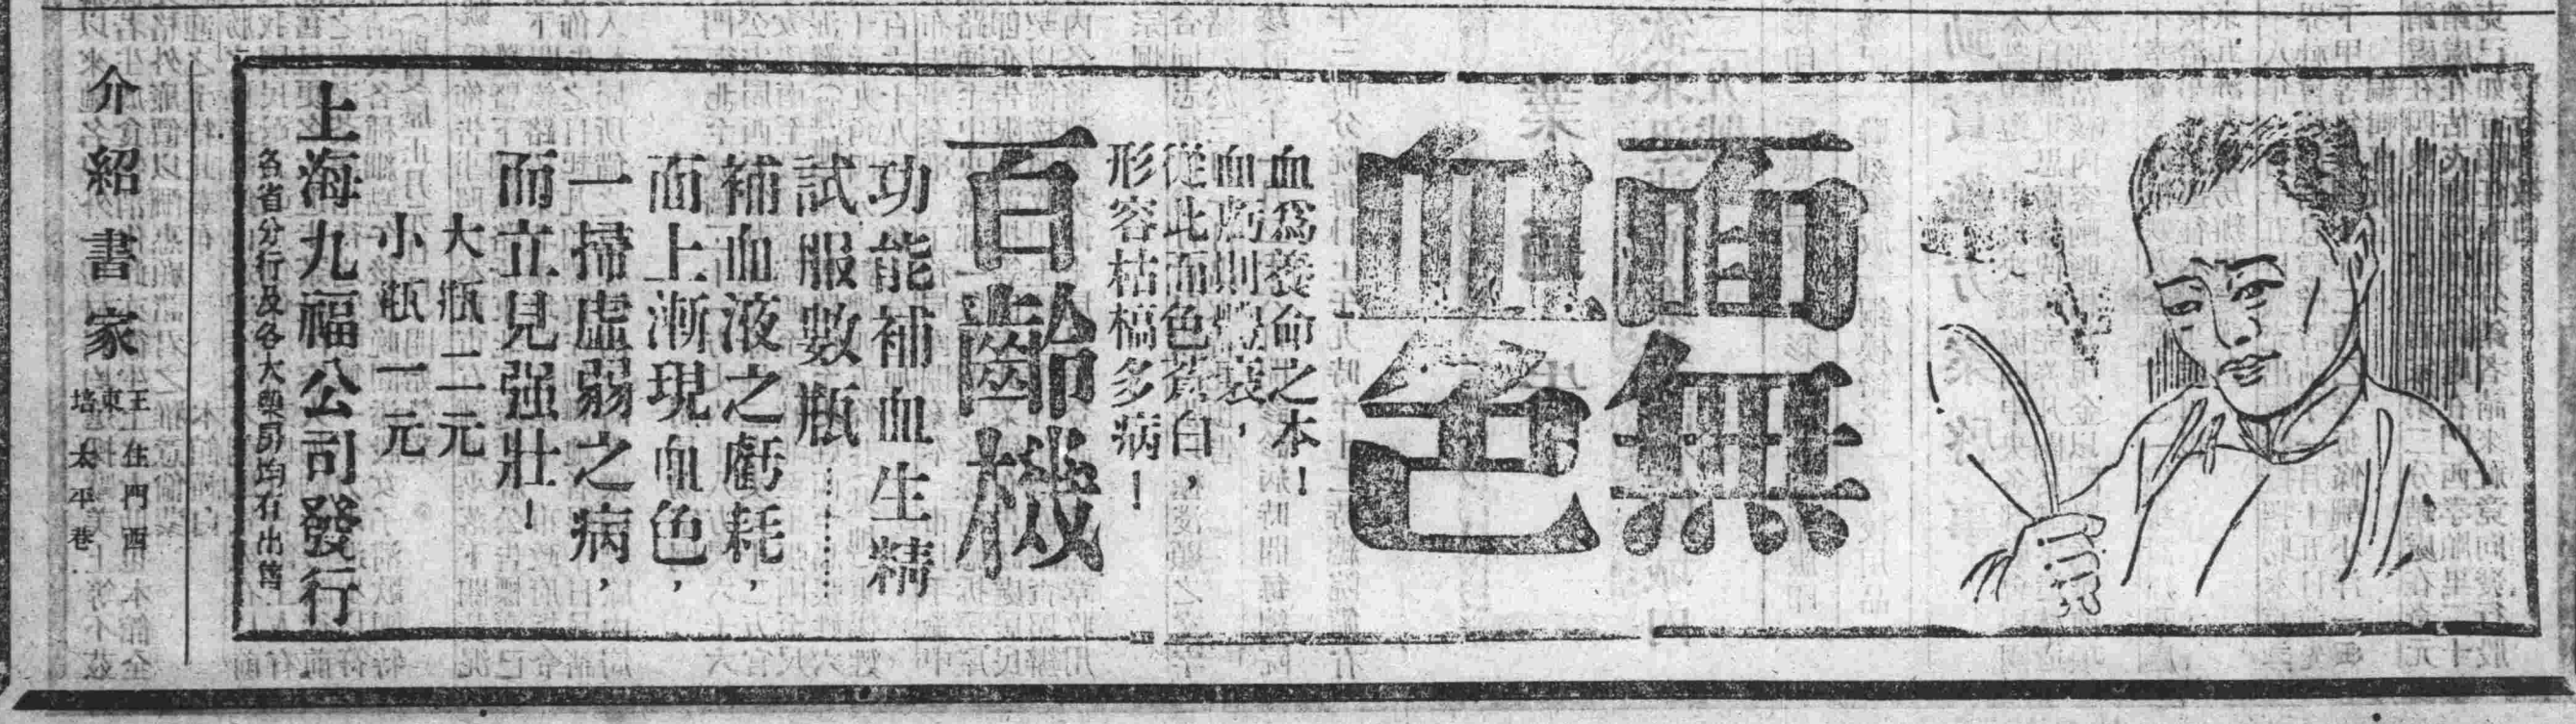 面無
血色
血爲養命之本！
血虧則體衰，
從此面色蒼白，
形容枯槁多病！
百齡機
功能補血生精
試服數瓶……
補血液之虧耗，
面上漸現血色，
一掃虛弱之病，
而立見强壯！
大瓶二元
小瓶一元
上海九福公司發行
各省分行及各大藥房均有出售
介紹書家
王東培
住門西太平巷